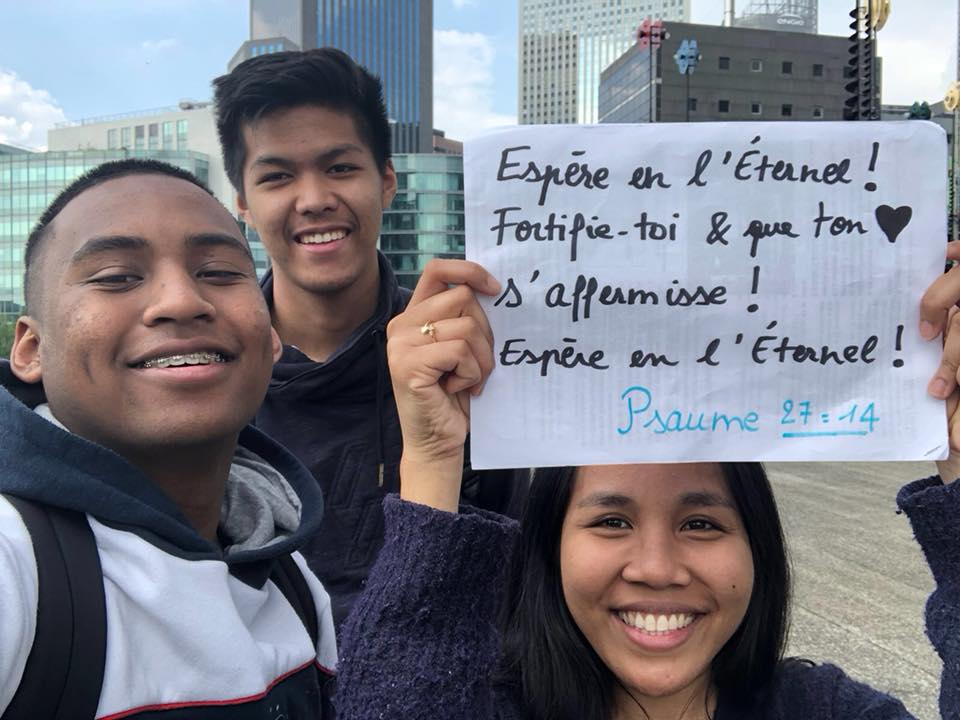 ENGIE
Espère en l'Éternel !
Fortifie-toi & que ton ♥
s'affermisse !
Espère en l'Éternel !
Psaume 27:14